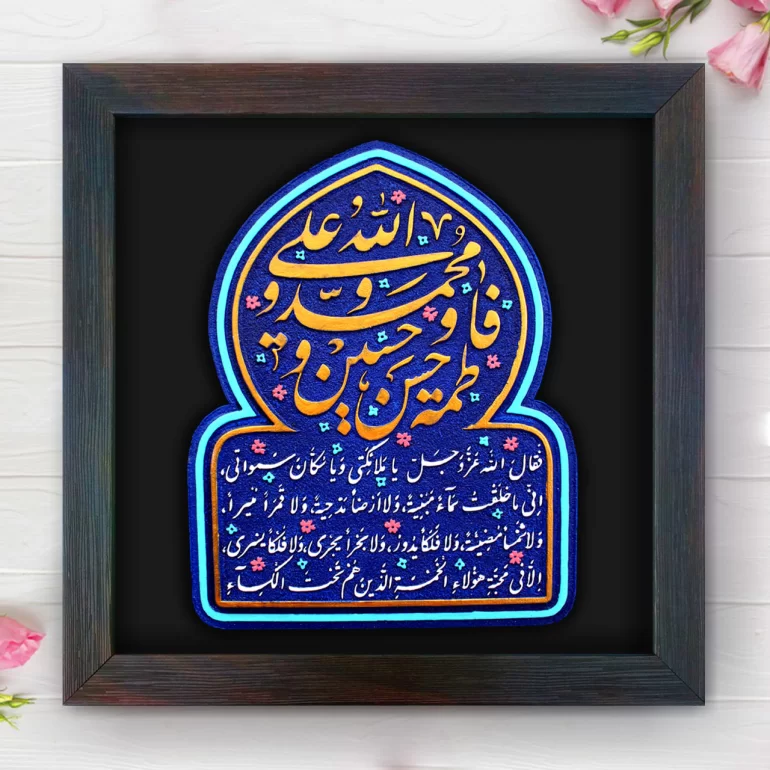 الله و علی
محمد و
فاطمة و حسن و حسین
فقال الله عز و جل یا ملائکتی و یا سکان سمواتی،
انی ما خلقت سماء مبنیة، ولا أرضا مدحیة، ولا قمرا منیرا،
ولا شمسا مضیئة، ولا فلکا یدور، ولا بحرا یجری، ولا فلکا یسری،
إلا فی محبة هؤلاء الخمسة الذین هم تحت الکساء